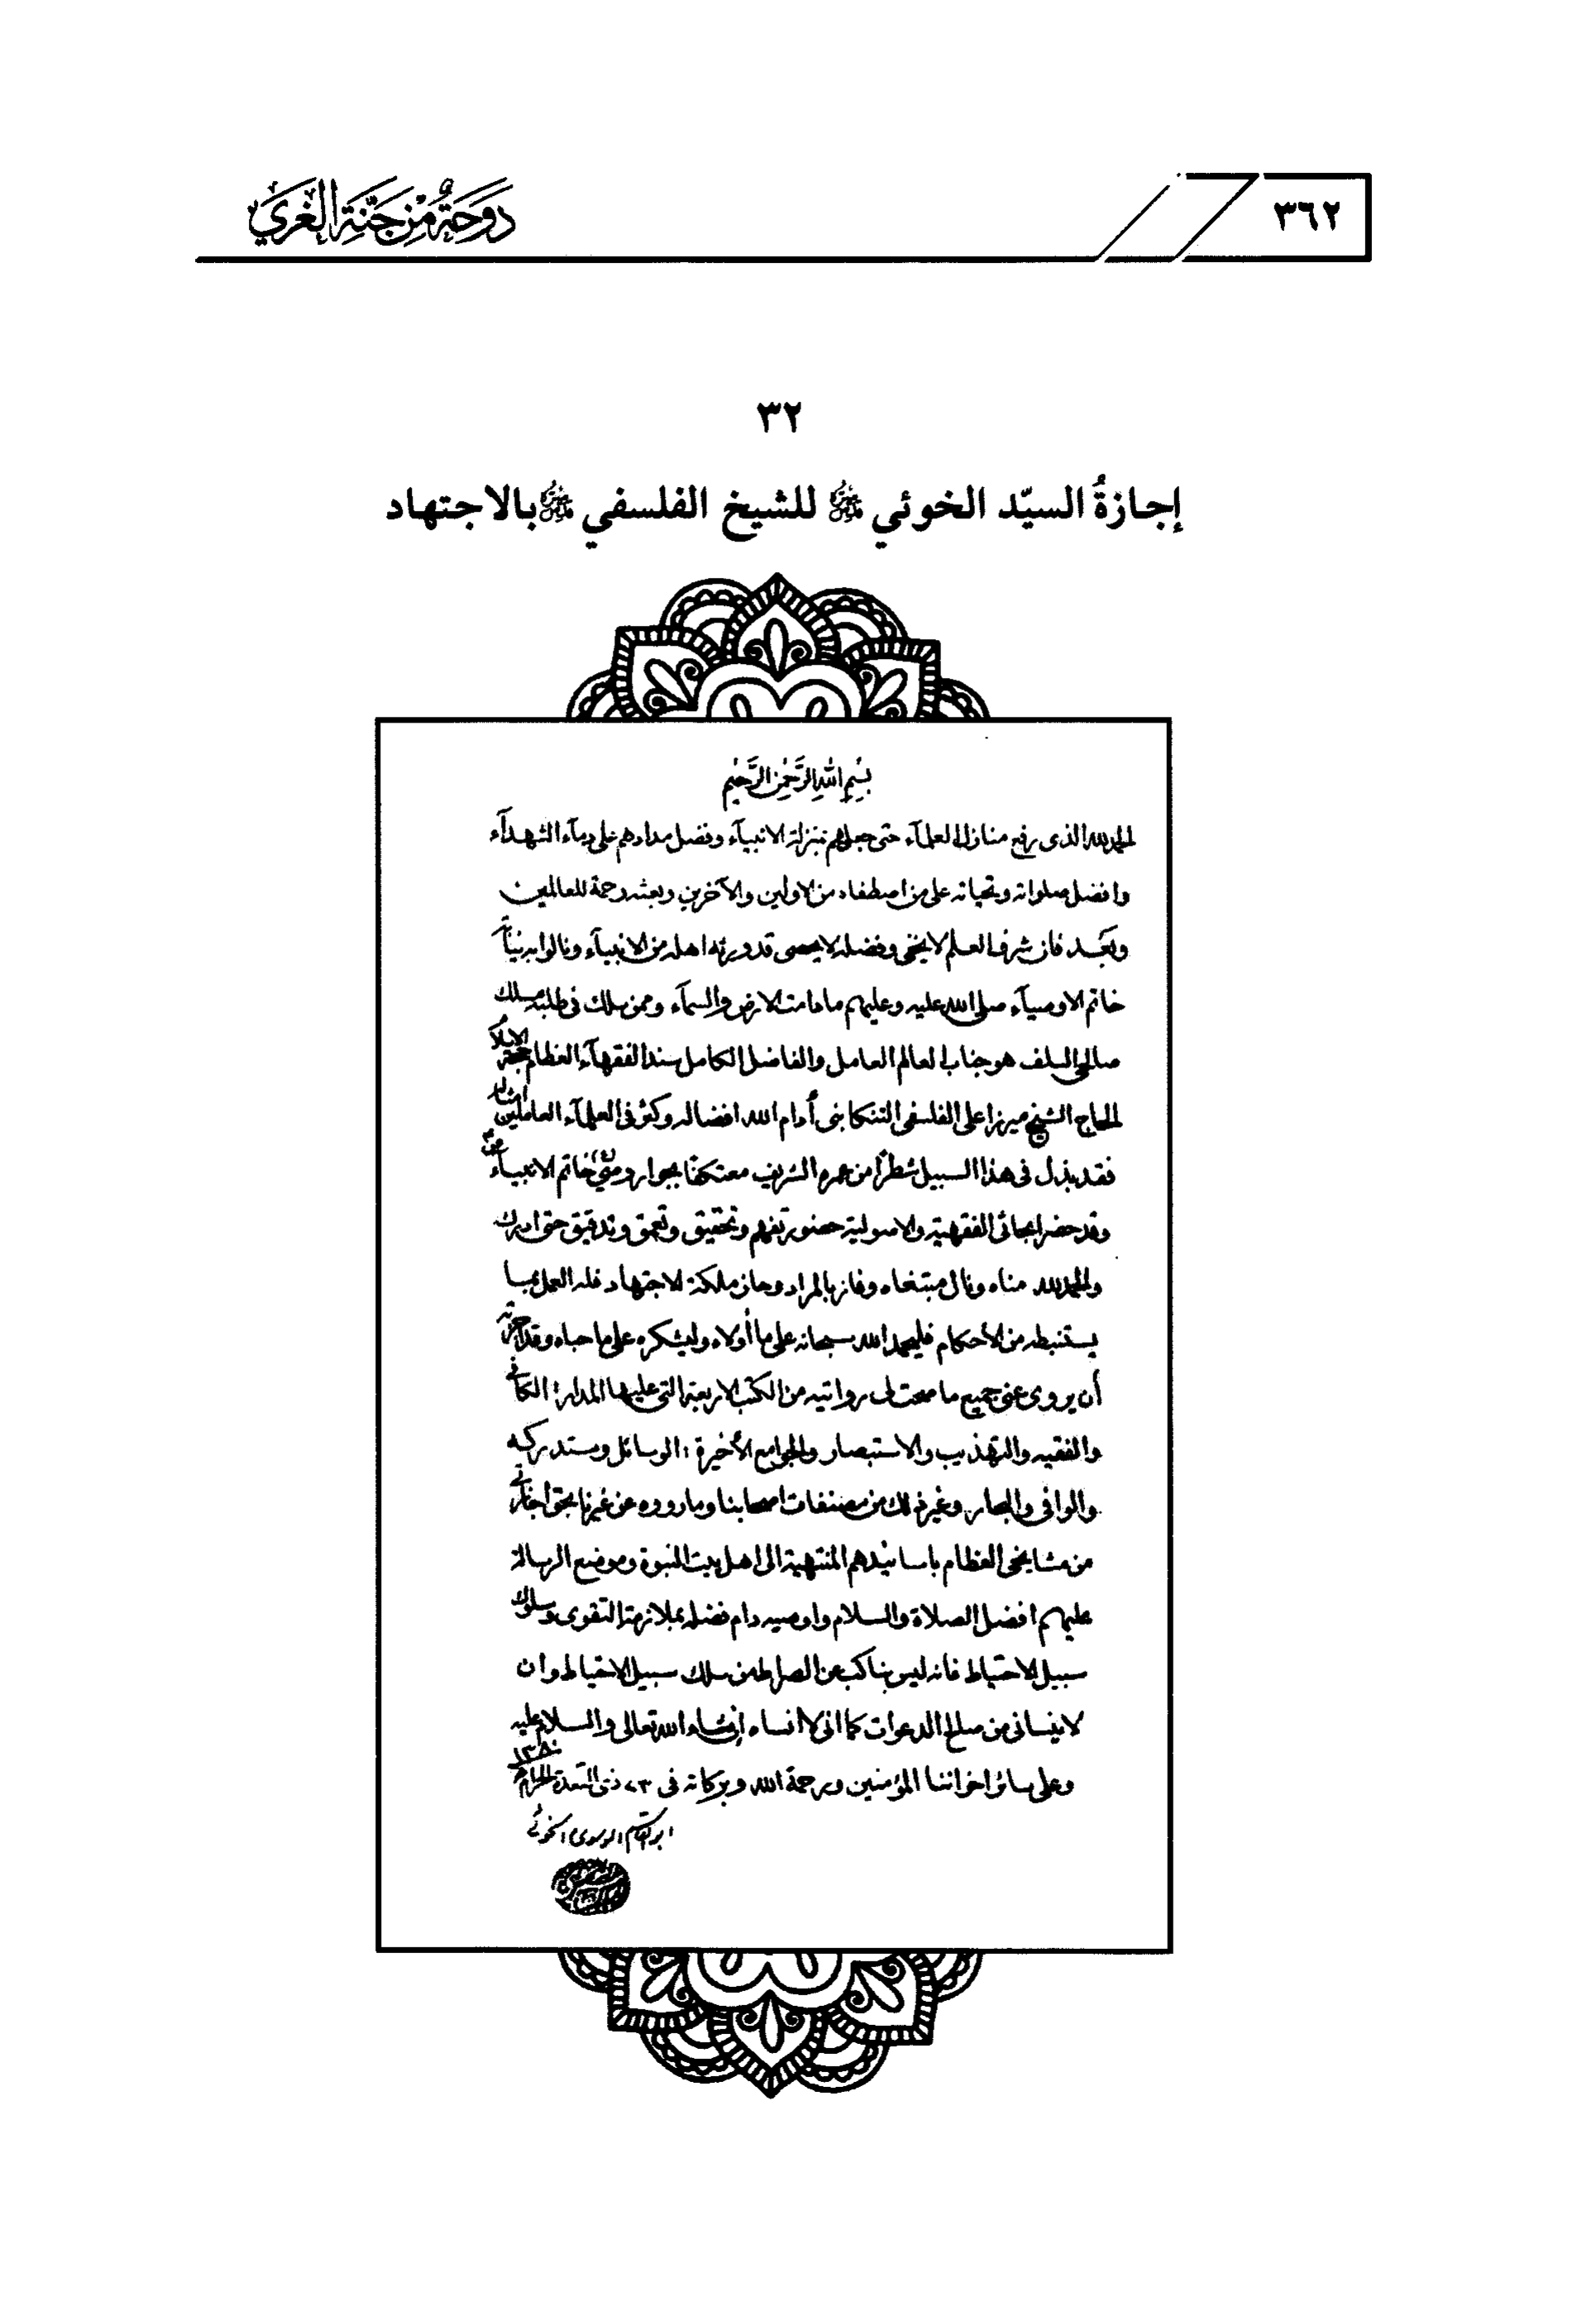 ٣٦٢
دَوحَةٌ مِن جَنَّةِ الغَري
٣٢
إجازةُ السيّد الخوئي للشيخ الفلسفي بالاجتهاد
بِسْمِ اللهِ الرَّحْمٰنِ الرَّحِيْمِ
الحمد لله الذى رفع منازل العلمآء حتى جعلهم بمنزلة الانبيآء وفضل مدادهم على دمآء الشهدآء
وافضل صلواته وتحياته على من اصطفاه من الاولين والآخرين وبعثه رحمة للعالمين
وبَعَـد فان شرف العلم لا يخفى وفضله لا يحصى قد ورثه اهله من الانبيآء ونالوا به نيابةً
خاتم الاوصيآء صلى الله عليه وعليهم ما دامت الارض والسمآء وممن سلك فى طلبه مسلك
صالحى السلف هو جناب العالم العامل والفاضل الكامل سند الفقهآء العظام حجة الاسلام
الحاج الشيخ ميرزا على الفلسفى التنكابنى أدام الله افضاله وكثر فى العلمآء العاملين امثاله
فقد بذل فى هذا السبيل شطرًا من عمره الشريف معتكفًا بجوار وصىّ خاتم الانبيآء
وقد حضر ابحاثى الفقهية والاصولية حضور تفهم وتحقيق وتعمق وتدقيق حتى ادرك
والحمد لله مناه ونال مبتغاه وفاز بالمراد وحاز ملكة الاجتهاد فله العمل بما
يستنبطه من الأحكام فليحمد الله سبحانه على ما أولاه وليشكره على ما حباه وقد اجزته
أن يروى عنى جميع ما صحت لى روايته من الكتب الاربعة التى عليها المدار: الكافى
والفقيه والتهذيب والاستبصار والجوامع الأخيرة: الوسائل ومستدركه
والوافى والبحار وغير ذلك من مصنفات اصحابنا وما رووه عن غيرنا بحق اجازتى
من مشايخى العظام باسانيدهم المنتهية الى اهل بيت النبوة وموضع الرسالة
عليهم افضل الصلاة والسلام واوصيه دام فضله بملازمة التقوى وسلوك
سبيل الاحتياط فانه ليس بناكب عن الصراط من سلك سبيل الاحتياط وان
لا ينسانى من صالح الدعوات كما انى لا انساه إنشاء الله تعالى والسلام عليه
وعلى سائر اخواننا المؤمنين ورحمة الله وبركاته فى ٢٣ ذى القعدة الحرام ١٣٨٠
ابو القاسم الموسوى الخوئى